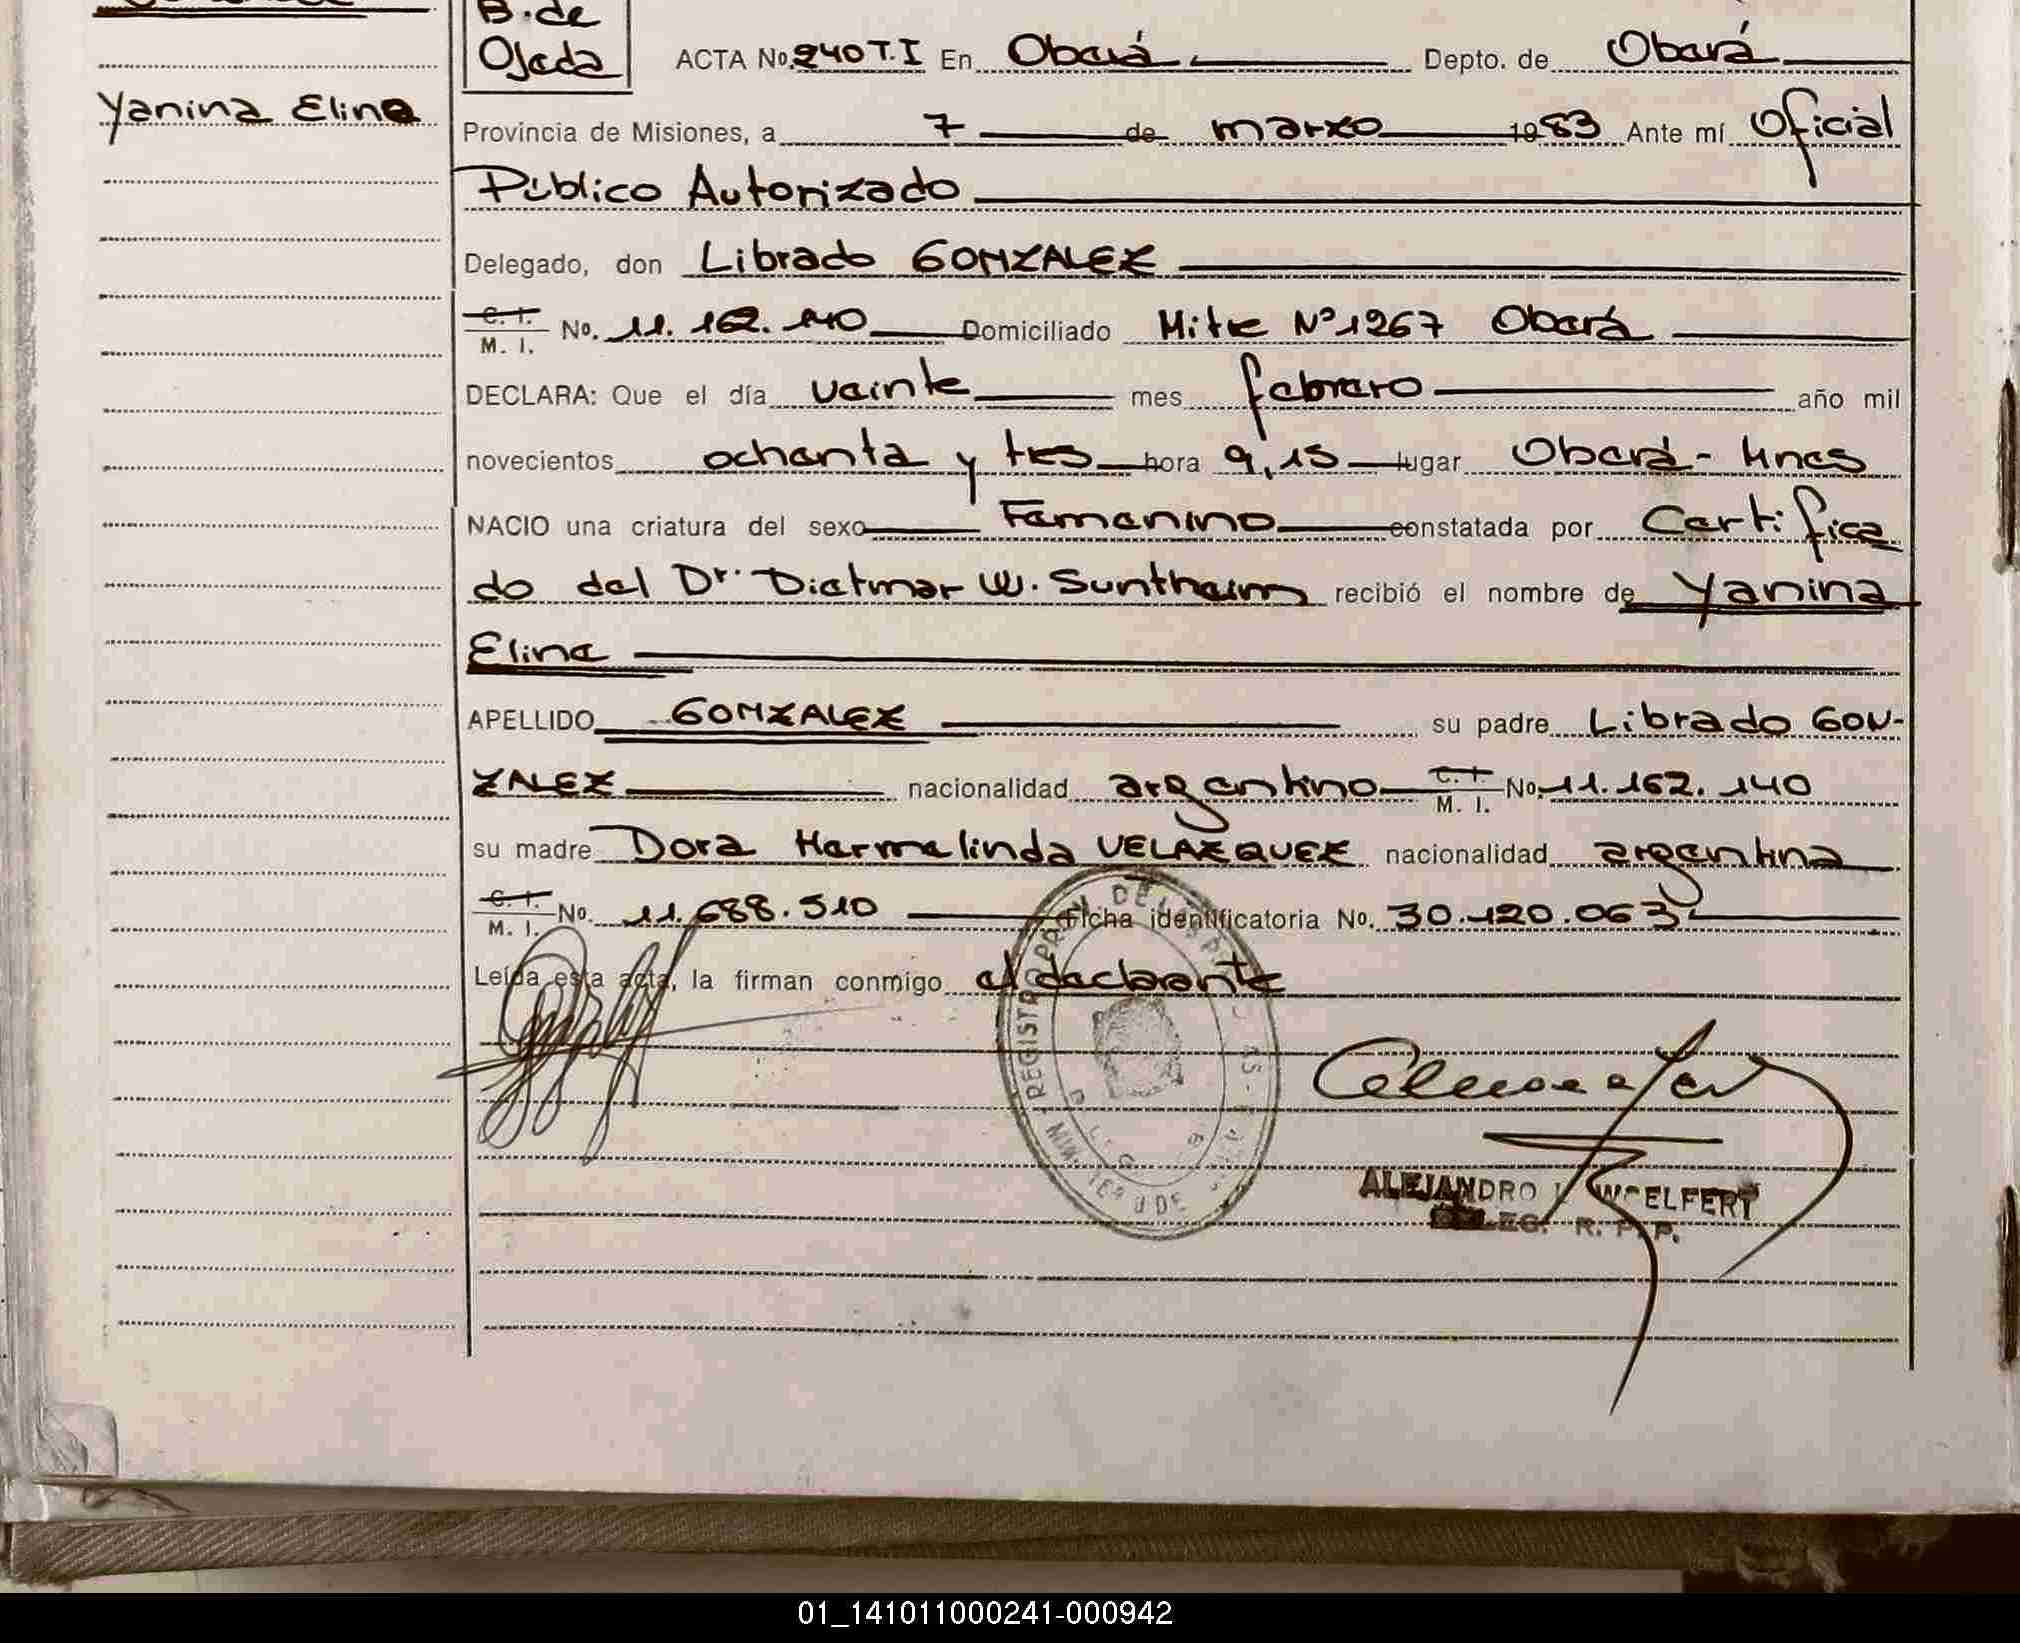 B. de
Ojeda
Yanina Elina
ACTA No. 240 T.I En Oberá Depto. de Oberá
Provincia de Misiones, a 7 de marzo 1983 Ante mí Oficial
Público Autorizado
Delegado, don Librado GONZALEZ
C. I. M. I. No. 11.162.140 Domiciliado Mitre Nº 1267 Oberá
DECLARA: Que el día veinte mes febrero año mil
novecientos ochenta y tres hora 9,15 lugar Oberá - Mnes
NACIO una criatura del sexo Femenino constatada por Certifica
do del Dr. Dietmar W. Suntheim recibió el nombre de Yanina
Elina
APELLIDO GONZALEZ su padre Librado GON-
ZALEZ nacionalidad argentino C. I. M. I. No. 11.162.140
su madre Dora Hermelinda VELAZQUEZ nacionalidad argentina
C. I. M. I. No. 11.688.510 Ficha identificatoria No. 30.120.063
Leída esta acta, la firman conmigo el declarante
ALEJANDRO WOELFERT
R. P. P.
01_141011000241-000942